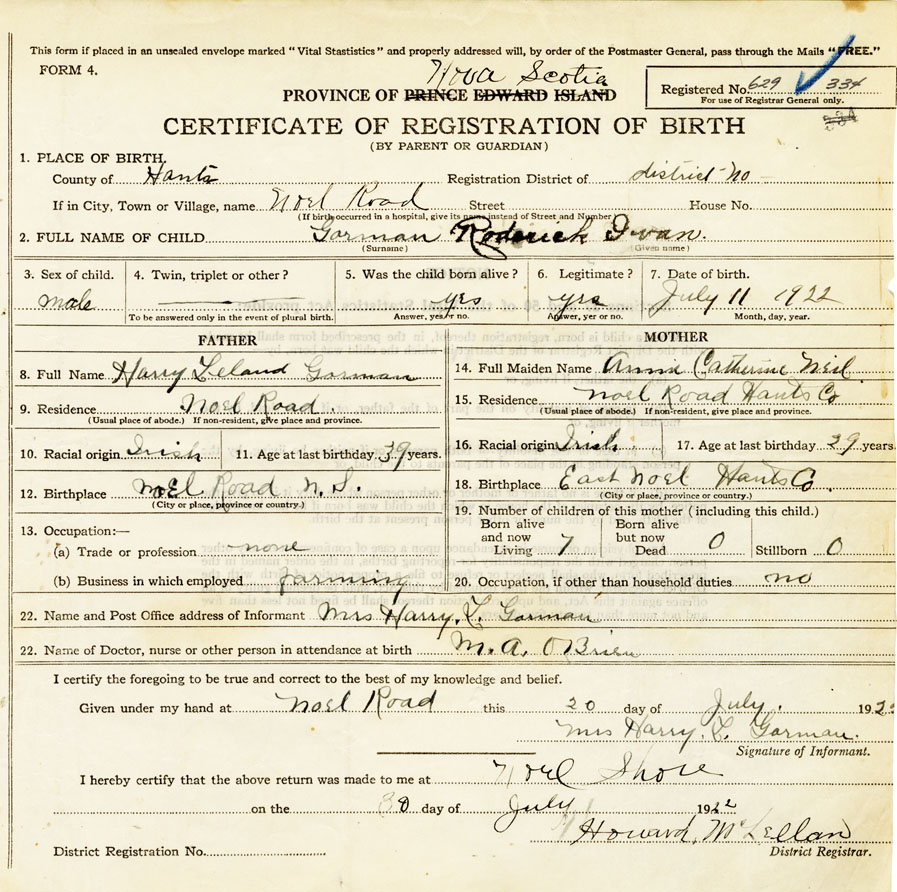 This form if placed in an unsealed envelope marked "Vital Stastistics" and properly addressed will, by order of the Postmaster General, pass through the Mails "FREE."
FORM 4.
Nova Scotia
PROVINCE OF PRINCE EDWARD ISLAND
Registered No. 629 334
For use of Registrar General only.
CERTIFICATE OF REGISTRATION OF BIRTH
(BY PARENT OR GUARDIAN)
1. PLACE OF BIRTH.
County of Hants Registration District of district No
If in City, Town or Village, name Noel Road Street House No.
(If birth occurred in a hospital, give its name instead of Street and Number)
2. FULL NAME OF CHILD Gorman Roderick Ivan.
(Surname) (Given name)
3. Sex of child. 4. Twin, triplet or other? 5. Was the child born alive? 6. Legitimate? 7. Date of birth.
male yes yes July 11 1922
To be answered only in the event of plural birth. Answer, yes or no. Answer, yes or no. Month, day, year.
FATHER MOTHER
8. Full Name Harry Leland Gorman 14. Full Maiden Name Anna Catherine Neil
9. Residence Noel Road. 15. Residence Noel Road Hants Co
(Usual place of abode.) If non-resident, give place and province. (Usual place of abode.) If non-resident, give place and province.
10. Racial origin Irish 11. Age at last birthday 39 years. 16. Racial origin Irish 17. Age at last birthday 29 years.
12. Birthplace Noel Road N. S. 18. Birthplace East Noel Hants Co.
(City or place, province or country.) (City or place, province or country.)
19. Number of children of this mother (including this child.)
13. Occupation:— Born alive and now Living 7 Born alive but now Dead 0 Stillborn 0
(a) Trade or profession none
(b) Business in which employed farming 20. Occupation, if other than household duties no
22. Name and Post Office address of Informant Mrs Harry. L. Gorman
22. Name of Doctor, nurse or other person in attendance at birth M. A. O'Brien
I certify the foregoing to be true and correct to the best of my knowledge and belief.
Given under my hand at Noel Road this 20 day of July. 192
Mrs Harry. L. Gorman.
Signature of Informant.
I hereby certify that the above return was made to me at Noel Shore
on the 30 day of July 1922
Howard McLellan
District Registration No. District Registrar.